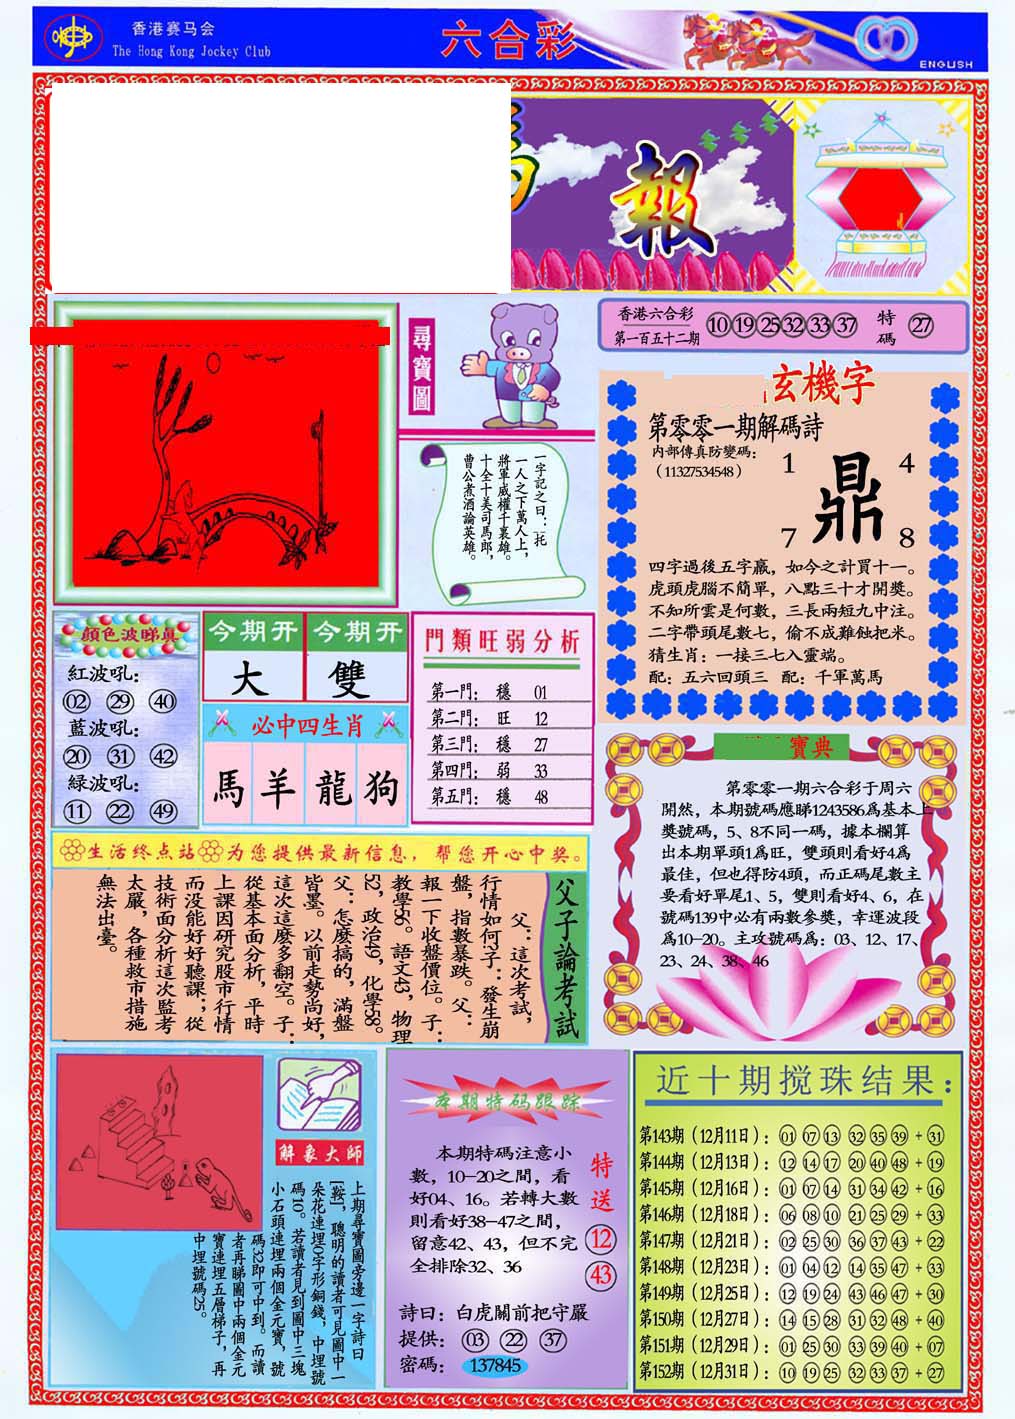 香港赛马会
The Hong Kong Jockey Club
六合彩
ENGLISH
報
尋寶圖
一字記之曰：托
一人之下萬人上，
將軍威權千裏雄。
十全十美司馬郎，
曹公煮酒論英雄。
香港六合彩
第一百五十二期
10 19 25 32 33 37
特碼
27
玄機字
第零零一期解碼詩
内部傳真防變碼：
（11327534548）
1 4
鼎
7 8
四字過後五字贏，如今之計買十一。
虎頭虎腦不簡單，八點三十才開獎。
不知所雲是何數，三長兩短九中注。
二字帶頭尾數七，偷不成難蝕把米。
猜生肖：一接三七入靈端。
配：五六回頭三 配：千軍萬馬
顏色波睇真
紅波吼：
02 29 40
藍波吼：
20 31 42
綠波吼：
11 22 49
今期开 今期开
大 雙
必中四生肖
馬 羊 龍 狗
門類旺弱分析
第一門： 穩 01
第二門： 旺 12
第三門： 穩 27
第四門： 弱 33
第五門： 穩 48
寶典
第零零一期六合彩于周六
開然，本期號碼應睇1243586爲基本上
獎號碼，5、8不同一碼，據本欄算
出本期單頭1爲旺，雙頭則看好4爲
最佳，但也得防4頭，而正碼尾數主
要看好單尾1、5，雙則看好4、6，在
號碼139中必有兩數參獎，幸運波段
爲10-20。主攻號碼爲：03、12、17、
23、24、38、46
生活终点站 为您提供最新信息，帮您开心中奖。
父子論考試
父：這次考試，
行情如何?子：發生崩
盤，指數暴跌。父：
報一下收盤價位。子：
教學56。語文43，物理
52，政治49，化學58。
父：怎麽搞的，滿盤
皆墨。以前走勢尚好，
這次這麽多翻空。子：
從基本面分析，平時
上課因研究股市行情
而没能好好聽課；從
技術面分析這次監考
太嚴，各種救市措施
無法出臺。
解象大師
上期尋寶圖旁邊一字詩曰
[鞍]，聰明的讀者可見圖中一
朵花連埋0字形銅錢，中埋號
碼10。若讀者見到圖中三塊
小石頭連埋兩個金元寶，號
碼32即可中到。而讀
者再睇圖中兩個金元
寶連埋五層梯子，再
中埋號碼25。
本期特码跟踪
本期特碼注意小
數，10-20之間，看
好04、16。若轉大數
則看好38-47之間，
留意42、43，但不完
全排除32、36
特送
12
43
詩曰：白虎關前把守嚴
提供： 03 22 37
密碼： 137845
近十期搅珠结果：
第143期（12月11日）：01 07 13 32 35 39 + 31
第144期（12月13日）：12 14 17 20 40 48 + 19
第145期（12月16日）：01 07 14 31 34 42 + 16
第146期（12月18日）：06 08 10 21 25 29 + 33
第147期（12月21日）：02 25 30 36 37 43 + 22
第148期（12月23日）：01 04 12 14 35 47 + 33
第149期（12月25日）：12 19 24 43 46 47 + 30
第150期（12月27日）：14 15 28 31 32 48 + 40
第151期（12月29日）：01 25 30 33 39 40 + 07
第152期（12月31日）：10 19 25 32 33 37 + 27